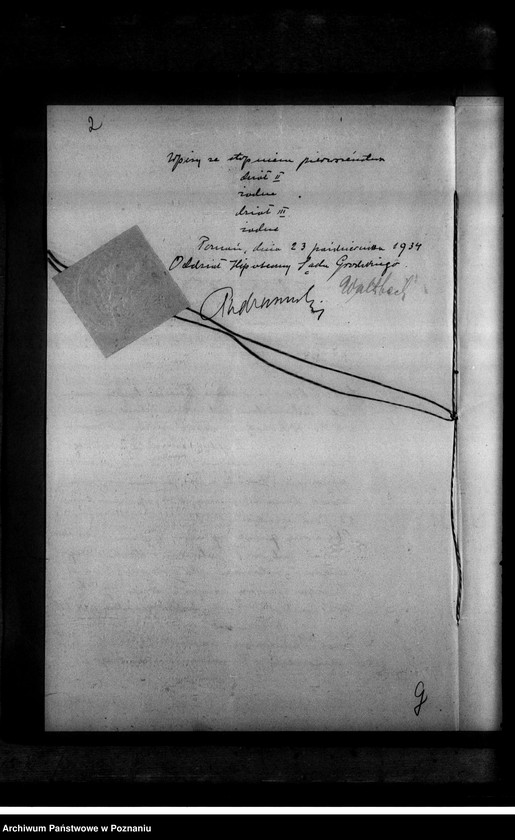 2
Wpisy ze stopniem pierwszeństwa
dział II
żadne
dział III
żadne
Poznań, dnia 23 października 1934
Oddział Hipoteczny Sądu Grodzkiego.
9
Archiwum Państwowe w Poznaniu